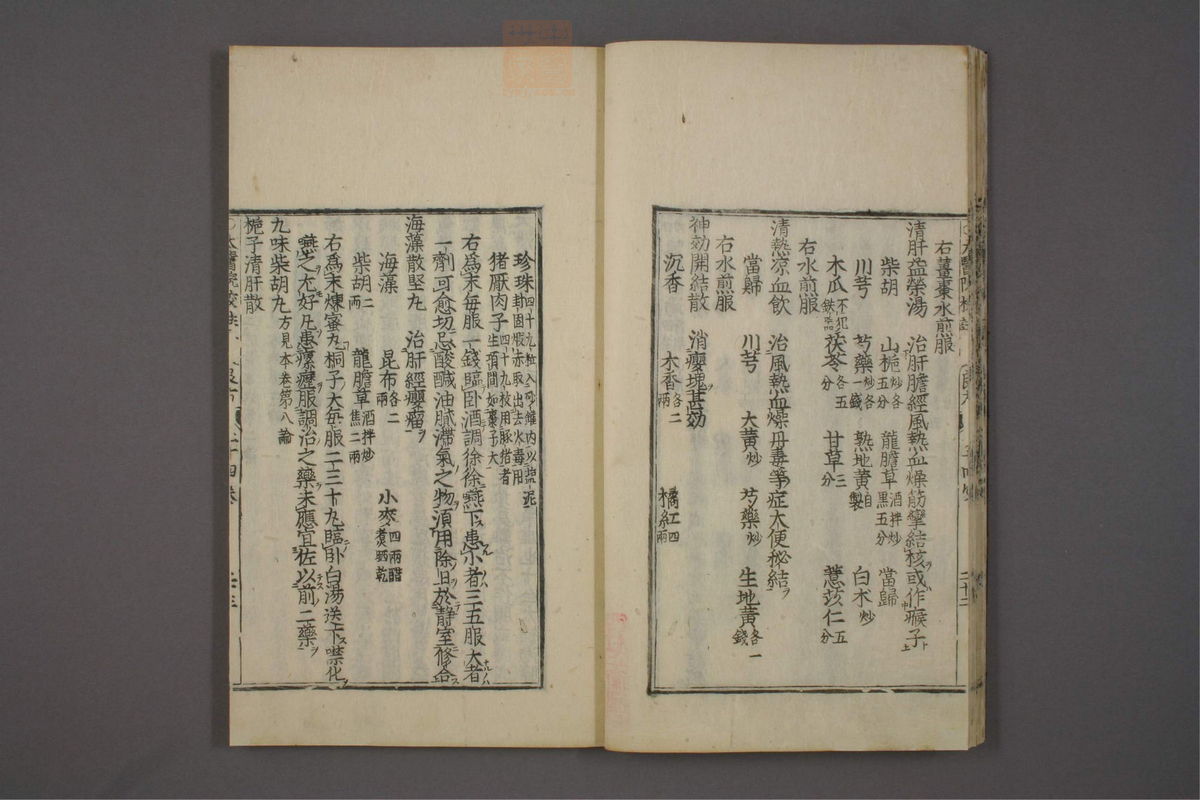 右薑棗水煎服
清肝益榮湯 治肝膽經風熱血燥筋攣結核或作瘊子
柴胡 山梔炒各五分 龍膽草酒拌炒黑五分 當歸
川芎 芍藥炒各一錢 熟地黃自製 白朮炒
木瓜不犯鉄器 茯苓各五分 甘草三分 薏苡仁五分
右水煎服
清熱凉血飲 治風熱血燥丹毒等症大便秘結
當歸 川芎 大黃炒 芍藥炒 生地黃各一錢
右水煎服
神効開結散 消癭塊甚効
沉香 木香各二兩 橘紅四兩
珍珠四十九粒入砂鍋內以鹽泥封固煅赤取出去火毒用
猪厭肉子生項間如棗子大四十九枚用豚猪者
右爲末每服一錢臨卧酒調徐徐嚥下患小者三五服大者
一劑可愈切忌酸醎油膩滯氣之物須用除日於靜室修合
海藻散堅丸 治肝經癭瘤
海藻 昆布各二兩 小麥四兩醋煑晒乾
柴胡二兩 龍膽草酒拌炒焦二兩
右爲末煉蜜丸桐子大每服二三十丸臨卧白湯送下噙化
嚥之尤好凡患瘰癧服調治之藥未應宜佐以前二藥
九味柴胡丸方見本卷第八論
梔子清肝散